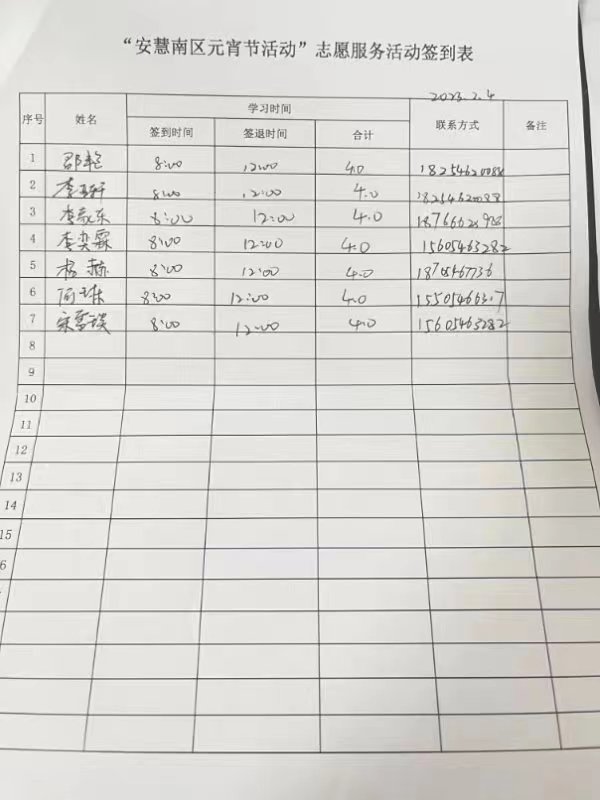 “安慧南区元宵节活动”志愿服务活动签到表
2023.2.4
序号 姓名 学习时间 联系方式 备注
签到时间 签退时间 合计
1 邵艳 8:00 12:00 4.0
2 8:00 12:00 4.0 18254620088
3 8:00 12:00 4.0
4 李奕霖 8:00 12:00 4.0 15605463282
5 杨赫 8:00 12:00 4.0
6 8:00 12:00 4.0
7 8:00 12:00 4.0 15605463282
8
9
10
11
12
13
14
15
6